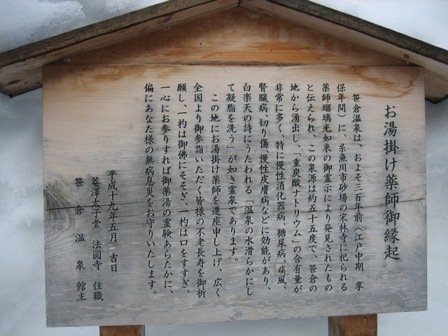 お湯掛け薬師御縁起
笹倉温泉は、およそ三百年前(江戸中期、享
保年間)に、糸魚川市砂場の宋林寺に祀られる
薬師瑠璃光如来の御霊示により発見されたもの
と伝えられ、この泉源は約五十五度で、笹倉の
地から湧出し、「重炭酸ナトリウム」の含有量が
非常に多く、特に慢性消化器病、糖尿病、痛風、
腎臓病、切り傷、慢性皮膚病などに効能があり、
白楽天の詩にうたわれる「温泉の水滑らかにし
て凝脂を洗う」が如き霊泉であります。
この地にお湯掛け薬師を遷座申し上げ、広く
全国より御参詣いただく皆様の不老長寿を御祈
願し、一杓は御佛にそそぎ、一杓は口をすすぎ、
一心にお参りすれば御薬湯の霊験あらたかに、
偏にあなた様の無病息災をお守りいたします。
平成十九年五月 吉日
法圓寺 住職
笹倉温泉 館主